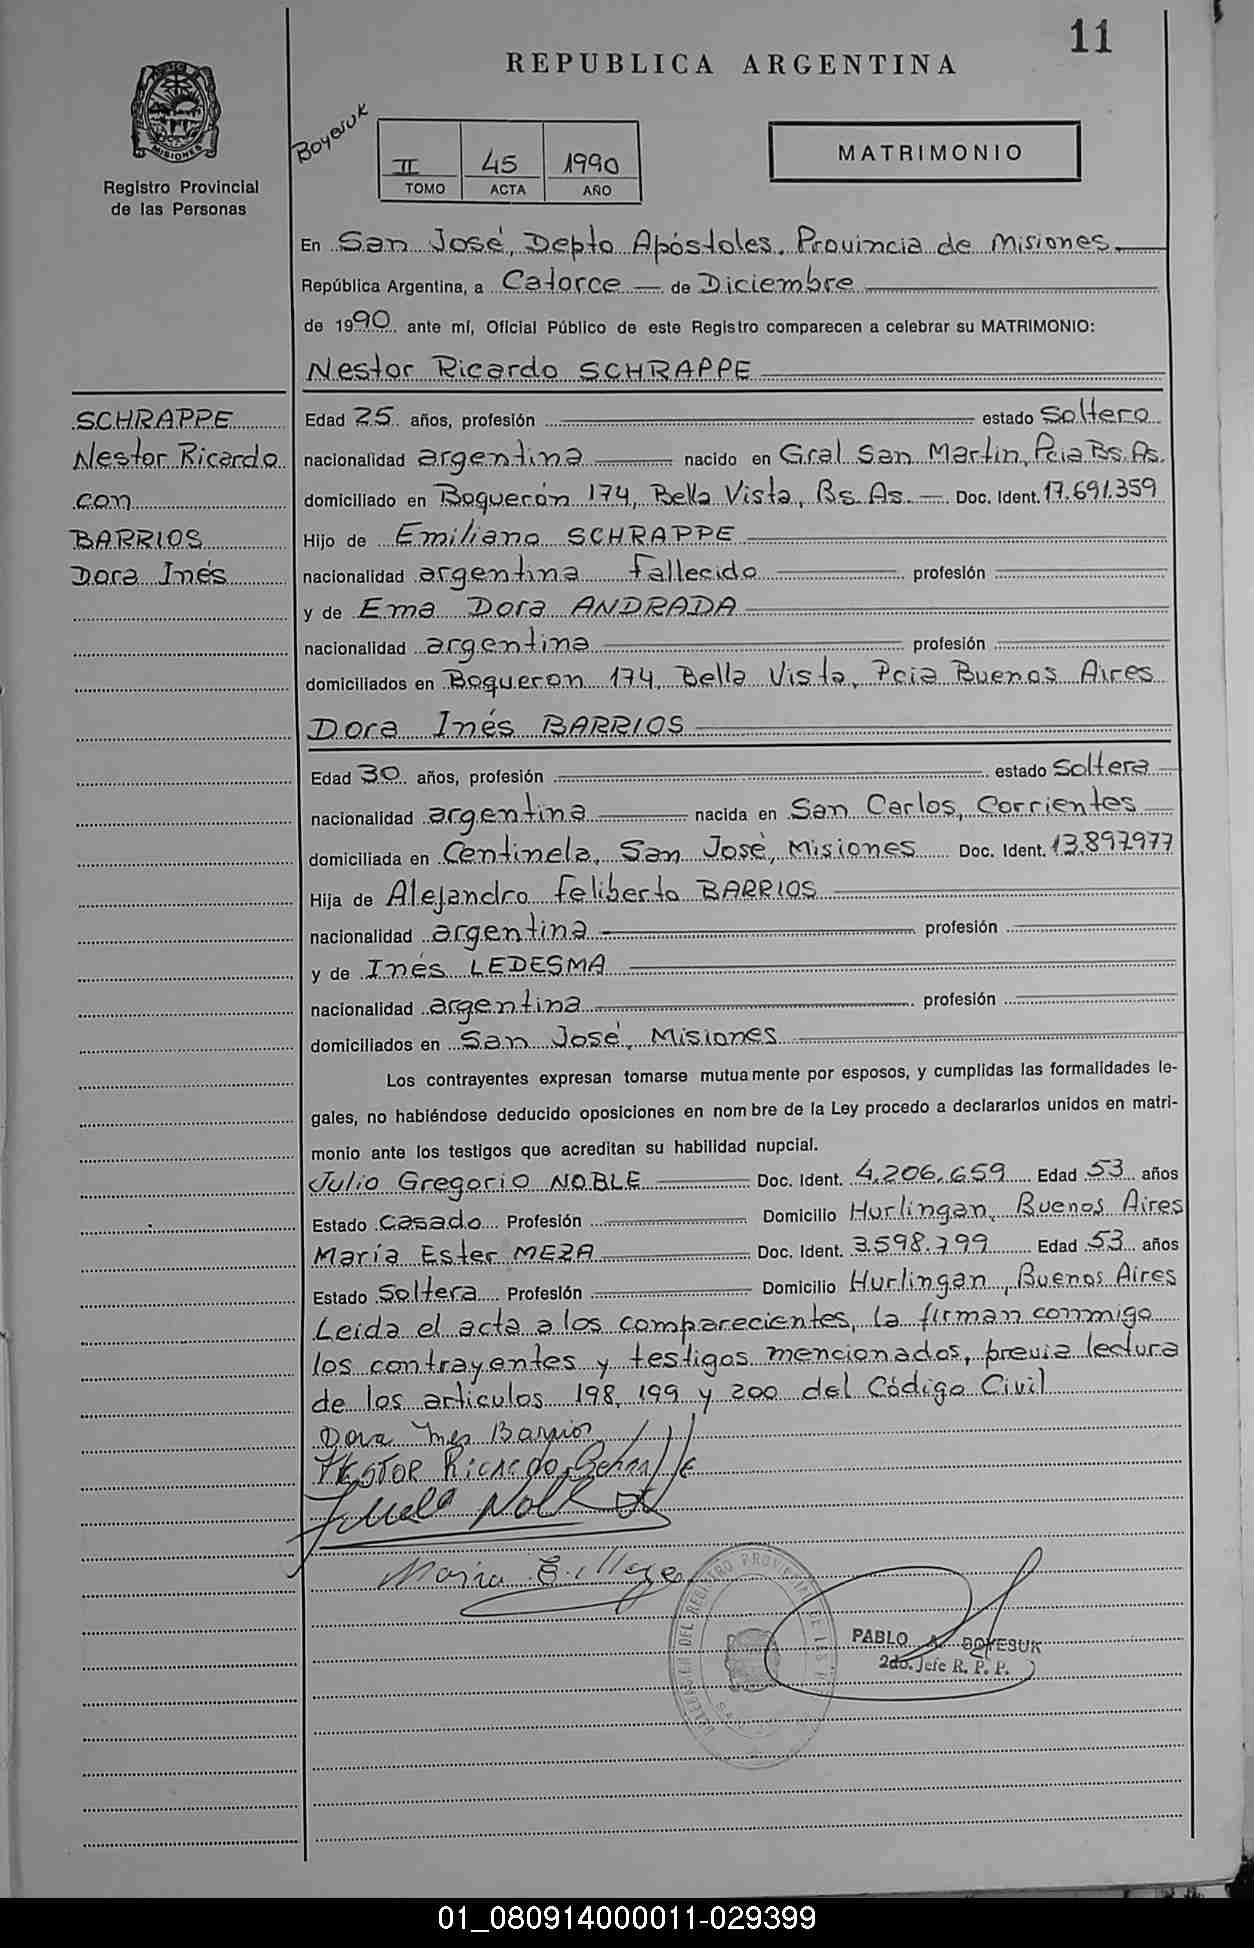 11
REPUBLICA ARGENTINA
MISIONES
Registro Provincial
de las Personas
Boyesuk
II 45 1990
TOMO ACTA AÑO
MATRIMONIO
En San José, Depto Apóstoles, Provincia de Misiones
República Argentina, a Catorce de Diciembre
de 1990 ante mí, Oficial Público de este Registro comparecen a celebrar su MATRIMONIO:
Nestor Ricardo SCHRAPPE
SCHRAPPE
Nestor Ricardo
con
BARRIOS
Dora Inés
Edad 25 años, profesión estado Soltero
nacionalidad argentina nacido en Gral San Martin, Pcia Bs. As.
domiciliado en Boquerón 174, Bella Vista, Bs. As. Doc. Ident. 17.691.359
Hijo de Emiliano SCHRAPPE
nacionalidad argentina Fallecido profesión
y de Ema Dora ANDRADA
nacionalidad argentina profesión
domiciliados en Boqueron 174, Bella Vista, Pcia Buenos Aires
Dora Inés BARRIOS
Edad 30 años, profesión estado Soltera
nacionalidad argentina nacida en San Carlos, Corrientes
domiciliada en Centinela, San José, Misiones Doc. Ident. 13.897.977
Hija de Alejandro Feliberto BARRIOS
nacionalidad argentina profesión
y de Inés LEDESMA
nacionalidad argentina profesión
domiciliados en San José, Misiones
Los contrayentes expresan tomarse mutuamente por esposos, y cumplidas las formalidades le-
gales, no habiéndose deducido oposiciones en nombre de la Ley procedo a declararlos unidos en matri-
monio ante los testigos que acreditan su habilidad nupcial.
Julio Gregorio NOBLE Doc. Ident. 4.206.659 Edad 53 años
Estado Casado Profesión Domicilio Hurlingan, Buenos Aires
María Ester MEZA Doc. Ident. 3.598.799 Edad 53 años
Estado Soltera Profesión Domicilio Hurlingan, Buenos Aires
Leida el acta a los comparecientes, la firman conmigo
los contrayentes y testigos mencionados, previa lectura
de los articulos 198, 199 y 200 del Código Civil
Dora Ines Barrios
NESTOR Ricardo Schrappe
María E.
REGISTRO PROVINCIAL DE LAS
PABLO A. BOYESUK
2do. Jefe R. P. P.
01_080914000011-029399